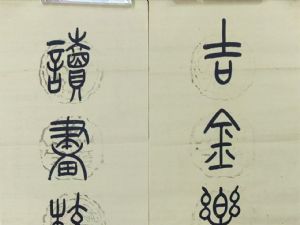 吉金樂
讀畫